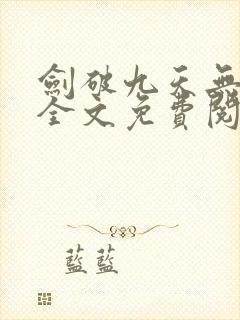 劍破九天無
全文免費閱
藍藍